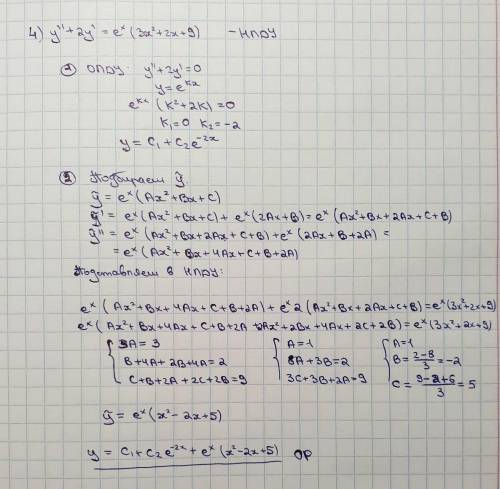 4) y'' + 2y' = eˣ (3x² + 2x + 9) - НЛДУ
① ОЛДУ: y'' + 2y' = 0
y = e^(kx)
e^(kx) (k² + 2k) = 0
k₁ = 0 k₂ = -2
y = C₁ + C₂e^(-2x)
② Подбираем ỹ.
ỹ = eˣ (Ax² + Bx + C)
ỹ' = eˣ (Ax² + Bx + C) + eˣ (2Ax + B) = eˣ (Ax² + Bx + 2Ax + C + B)
ỹ'' = eˣ (Ax² + Bx + 2Ax + C + B) + eˣ (2Ax + B + 2A) =
= eˣ (Ax² + Bx + 4Ax + C + B + 2A)
Подставляем в НЛДУ:
eˣ (Ax² + Bx + 4Ax + C + B + 2A) + eˣ 2 (Ax² + Bx + 2Ax + C + B) = eˣ (3x² + 2x + 9)
eˣ (Ax² + Bx + 4Ax + C + B + 2A + 2Ax² + 2Bx + 4Ax + 2C + 2B) = eˣ (3x² + 2x + 9)
{ 3A = 3 { A = 1 { A = 1
B + 4A + 2B + 4A = 2 8A + 3B = 2 B = (2-8)/3 = -2
C + B + 2A + 2C + 2B = 9 3C + 3B + 2A = 9 C = (9-2+6)/3 = 5
ỹ = eˣ (x² - 2x + 5)
y = C₁ + C₂e^(-2x) + eˣ (x² - 2x + 5) ОР